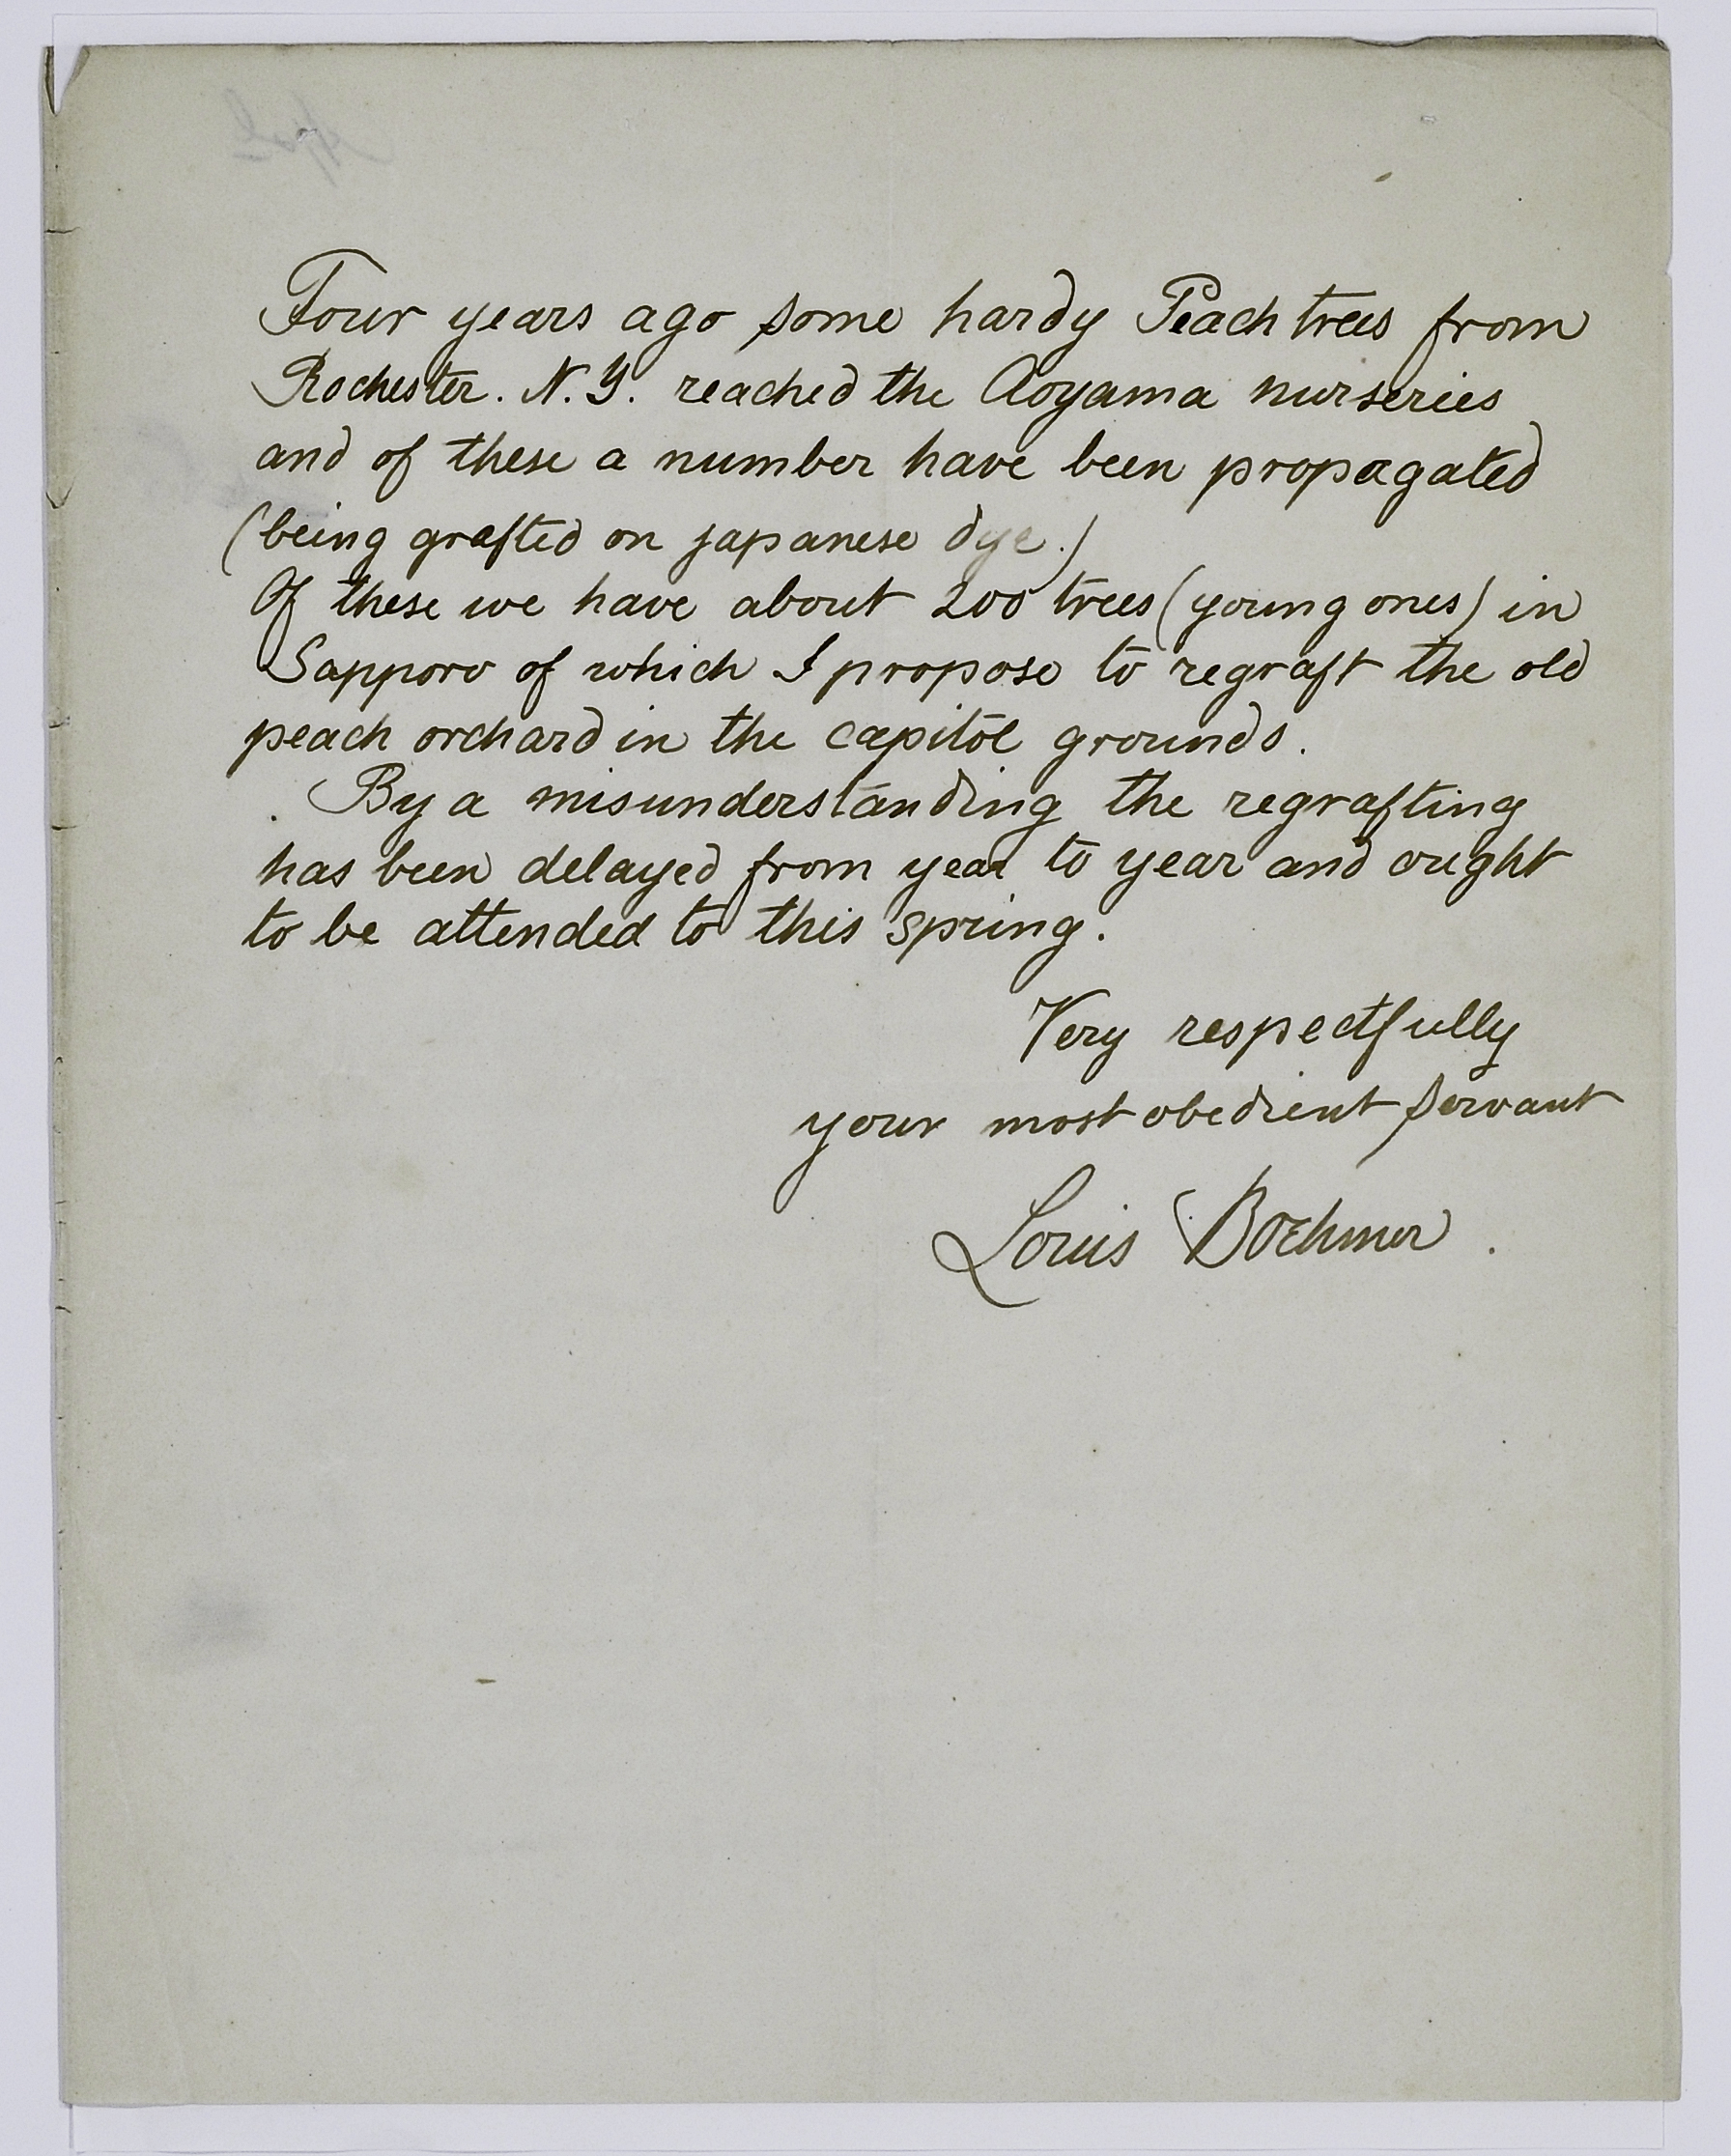 Four years ago some hardy Peach trees from
Rochester. N.Y. reached the Aoyama nurseries
and of these a number have been propagated
(being grafted on japanese dye.)
Of these we have about 200 trees (young ones) in
Sapporo of which I propose to regraft the old
peach orchard in the capitol grounds.
By a misunderstanding the regrafting
has been delayed from year to year and ought
to be attended to this spring.
Very respectfully
your most obedient servant
Louis Boehmer.